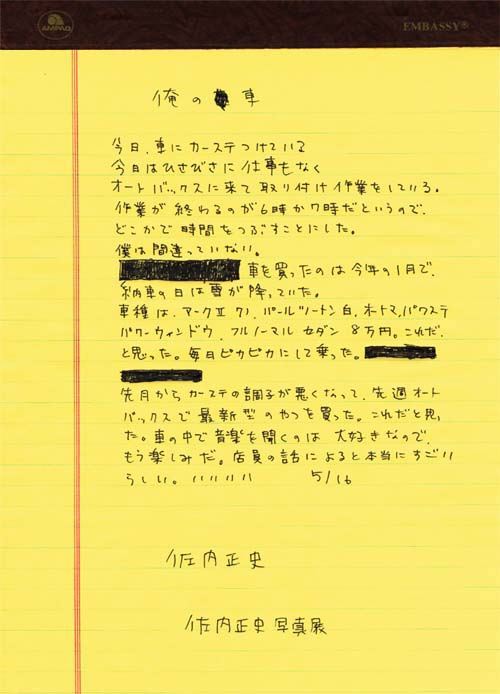 AMPAD
EMBASSY®
俺の車
今日、車にカーステつけている
今日はひさびさに仕事もなく
オートバックスに来て取り付け作業をしている。
作業が終わるのが6時か7時だというので、
どこかで時間をつぶすことにした。
僕は間違っていない。
車を買ったのは今年の1月で、
納車の日は雪が降っていた。
車種は、マークⅡの、パールツートン白、オートマ、パワステ
パワーウィンドウ、フルノーマルセダン 8万円。これだ、
と思った。毎日ピカピカにして乗った。
先月からカーステの調子が悪くなって、先週オート
バックスで最新型のやつを買った。これだと思っ
た。車の中で音楽を聞くのは大好きなので、
もう楽しみだ。店員の話によると本当にすごい
らしい。 5/16
佐内正史
佐内正史写真展